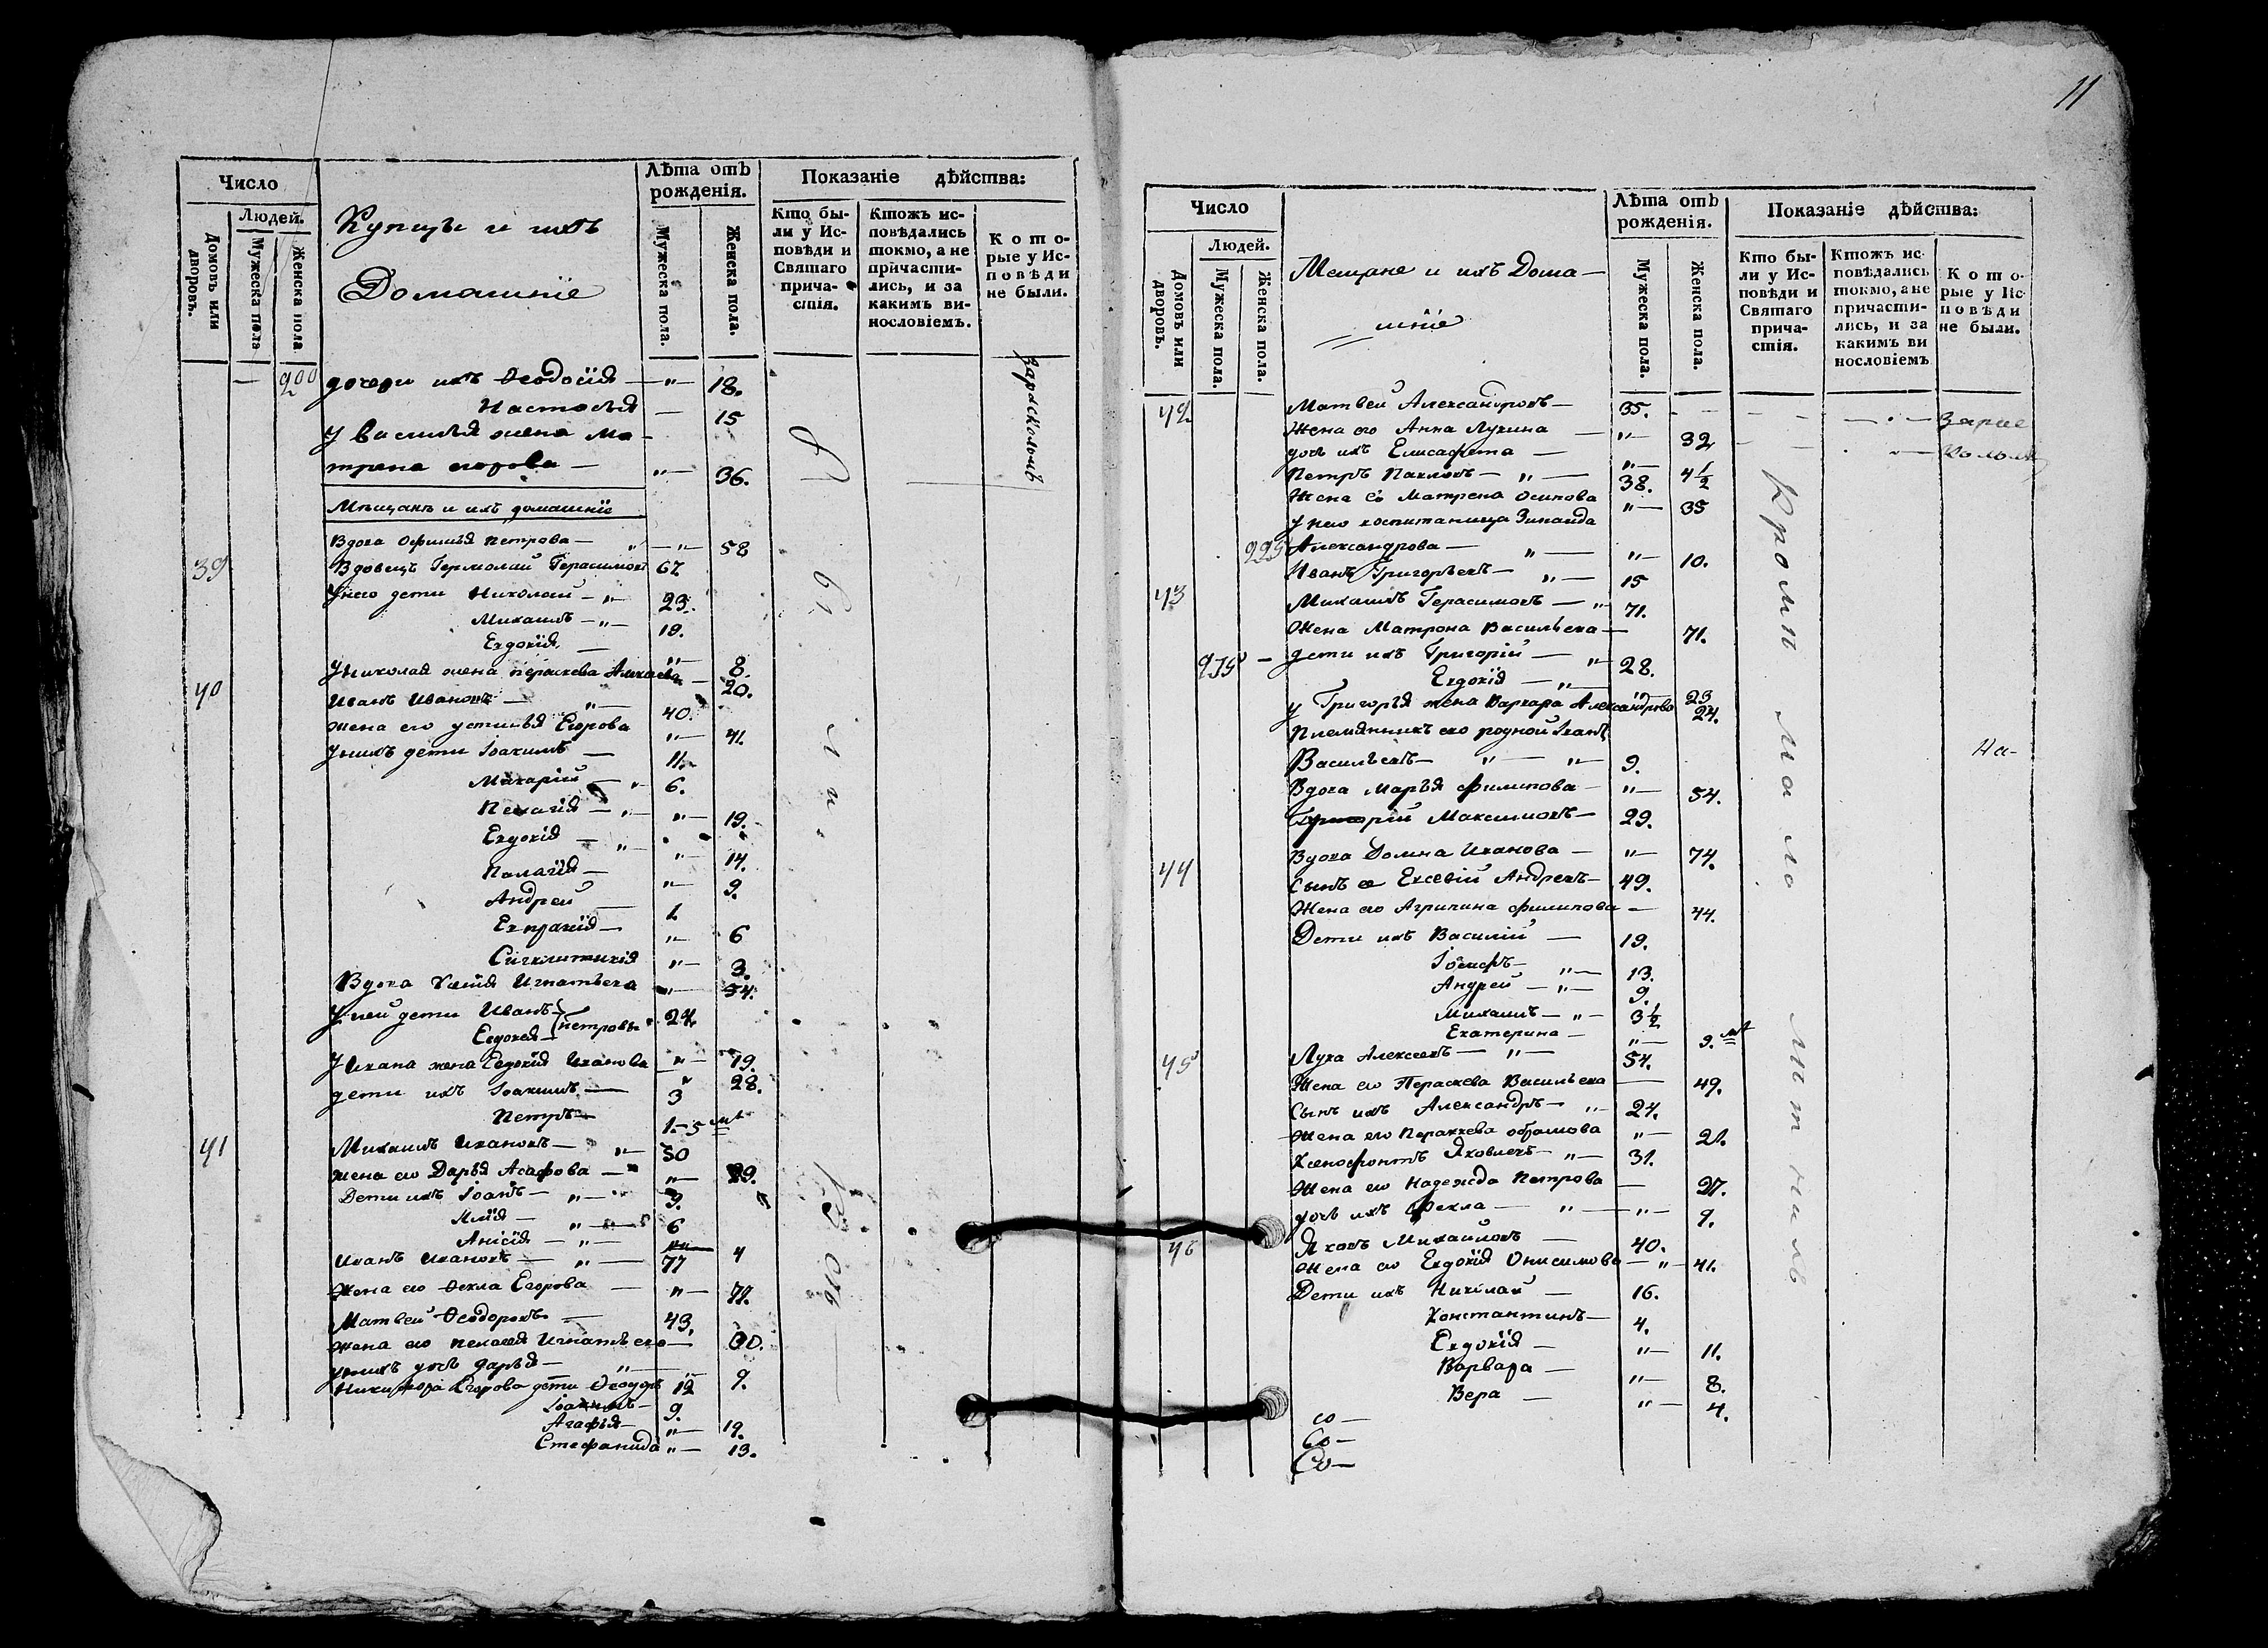 Число
Людей.
Домовъ или дворовъ.
Мужеска пола
Женска пола
Купцы и ихъ
Домашніе
Лѣта отъ рожденія.
Мужеска пола.
Женска пола.
Показаніе дѣйства:
Кто бы-
ли у Ис-
повѣди и
Святаго
прича-
стія.
Ктожъ ис-
повѣдались
токмо, а не
причасти-
лись, и за
какимъ ви-
нословіемъ.
К о т о-
рые у Ис-
п о в ѣ д и
не были.
— 200 дочери ихъ Ѳеодосія — „— 18.
Настасья — 15
У Василья жена Ма-
трена егорова — „— 36.
За расколомъ
Мѣщанѣ и ихъ домашніе
Вдова Офимья Петрова — „ —„— 58
39 Вдовецъ Гермолай Герасимовъ 67
У него дети Николай — „ 23.
Михаилъ — „— 19.
Евдокія — „— 8.
У Николая жена параскева — 20.
40 Иванъ Ивановъ — „— 40.
Жена его устинья Егорова „— 41.
У нихъ дети Іоакимъ — 11.
Макарій — „ 6.
Пелагія — „— „— 19.
Евдокія — „— „— 14.
Палагія — „— 9.
Андрей — 1.
Евпраксія — „— 6
Сигклитикія „— 3.
Вдова Игнатьева „— 54.
У ней дети Иванъ — Петровы 24.
Евдокея — 19.
У Ивана жена Евдокія Иванова „— 28.
дети ихъ Іоакимъ — 3
Петръ — 1.-5 мѣ
41 Михаилъ Ивановъ — „— 30
Жена его Дарья Асафова — „— 29.
Дети ихъ Іоанъ — „— 9.
Илія — „— 6
Анісія — „— 4
Иванъ Ивановъ — „— 77
Жена его Ѳекла Егорова — „— 77.
Матвей Ѳеодоровъ — 43.
Жена его пелагея Игнатьева — 30.
У нихъ дочь Дарья — „— 9.
Никифора Егорова дети Ѳеодоръ 12
Іоакимъ — 9.
Агафья — „— 19.
Стефанида „— 13.
были всѣ
11
Число
Людей.
Домовъ или дворовъ.
Мужеска пола.
Женска пола.
Мещане и ихъ Дома-
шніе
Лѣта отъ рожденія.
Мужеска пола.
Женска пола.
Показаніе дѣйства:
Кто бы-
ли у Ис-
повѣди и
Святаго
прича-
стія.
Ктожъ ис-
повѣдались
токмо, а не
причасти-
лись, и за
какимъ ви
нословіемъ
К о т о-
рые у Ис-
п о в ѣ д и
не были.
42 Матвей Александровъ — 35. За рас
Жена его Анна Лукина — „— 32 коломъ
дочь ихъ Елисафета — „— 4½
Петръ Павловъ — „— 38.
Жена его Матрена Осипова „— 35
У него воспитаница Зинаида
225 Александрова — „— „— 10.
Иванъ Григорьевъ — „— 15
43 Михаилъ Герасимовъ — „ 71.
Жена Матрона Васильева — 71.
дети ихъ Григорій — „— 28.
Евдокія — „— 23
У Григорья жена Варвара Александрова 24.
Племянникъ его родной Іванъ
Васильевъ — „— „— 9.
Вдова Марья Филипова — „— 54.
Григорій Максимовъ — 29.
44 Вдова Домна Иванова — „— 74.
Сынъ ее Евсевій Андреевъ — 49.
Жена его Агрипина Филипова — 44.
Дети ихъ Василій — 19.
Іосифъ — „— 13.
Андрей — „— 9.
Михаилъ — „— 3½
Екатерина — „— 9. мѣ
45 Лука Алексеевъ — „— 54.
Жена его Параскева Васильева — 49.
Сынъ ихъ Александръ — „— 24.
Жена его Параскева „— 21.
Ксенофонтъ Яковлевъ — „— 31.
Жена его Надежда Петрова — 27.
дочь ихъ Фекла — „— „— 9.
46 Яковъ Михайловъ — 40.
Жена его Евдокія Онисимова — „— 41.
Дети ихъ Николай — 16.
Константинъ — 4.
Евдокія — „— 11.
Варвара — „— 8.
Вера — „— 4.
со —
Со —
Со —
Кроме малолѣтныхъ